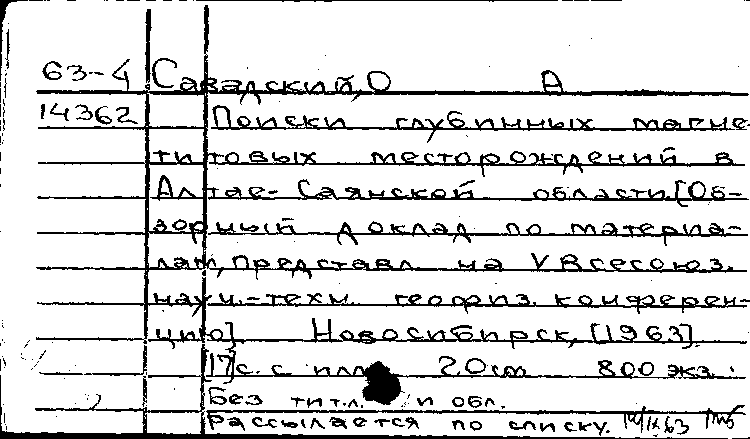 63-4 Савадский, О А
14362 Поиски глубинных магне-
титовых месторождений в
Алтае-Саянской области. [Об-
зорный доклад по материа-
лам, представл на V Всесоюз.
научн.-техн. геофиз. конферен-
цию]. Новосибирск, [1963].
[17]с. с илл 20см 800 экз.
Без тит.л. и обл.
Рассылается по списку.